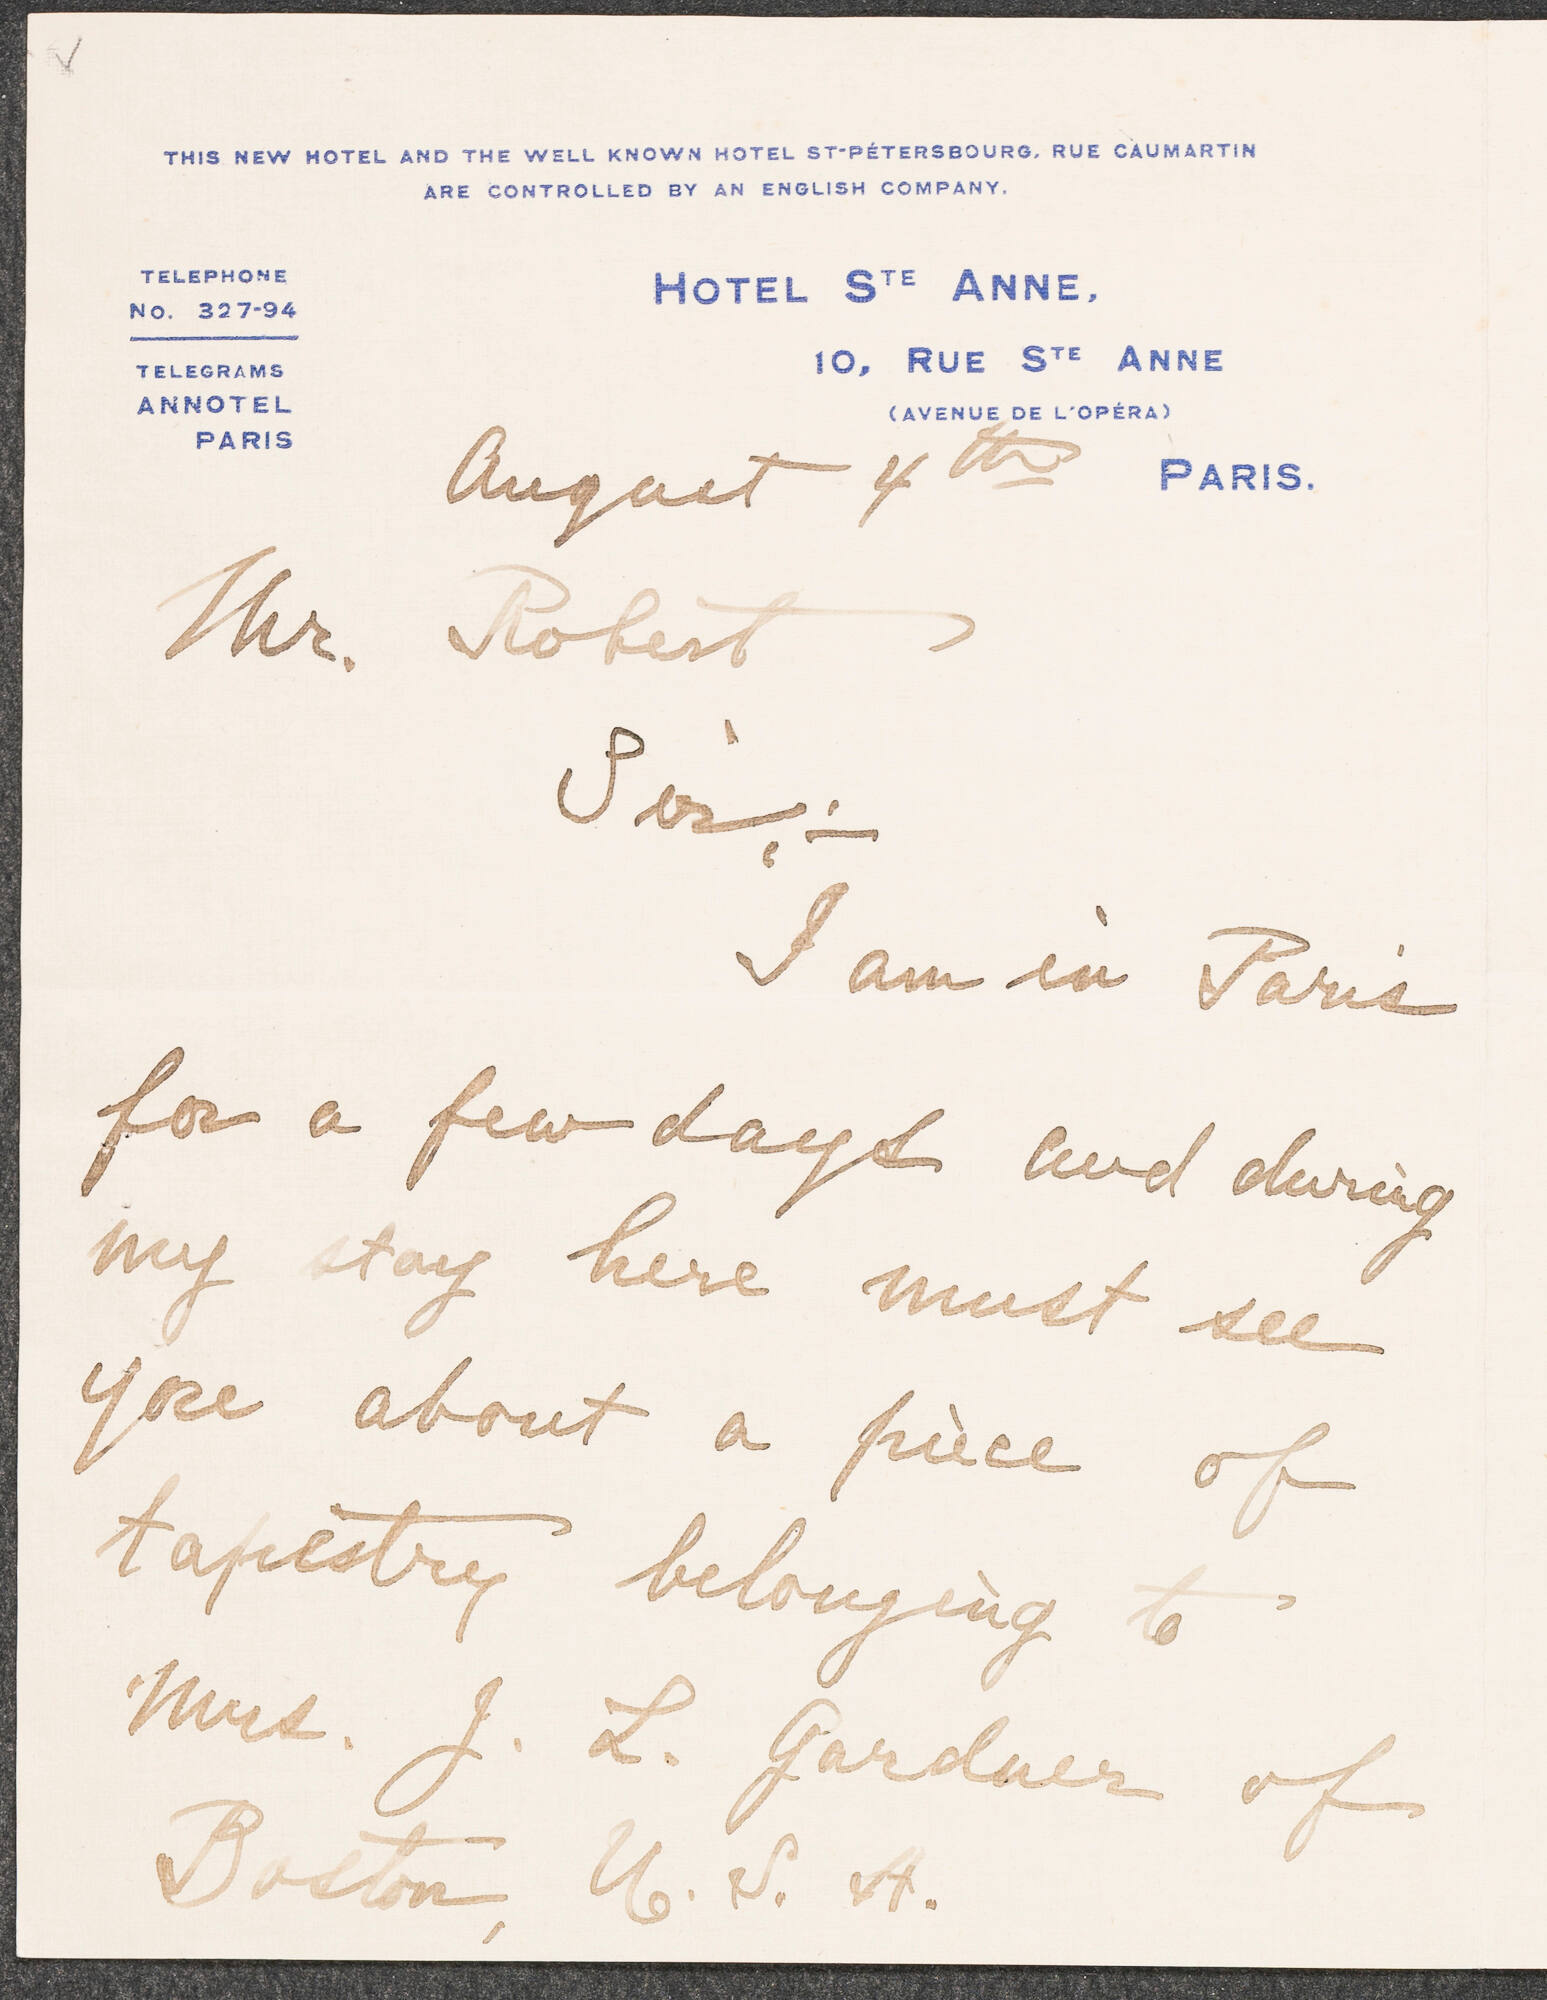 THIS NEW HOTEL AND THE WELL KNOWN HOTEL ST-PÉTERSBOURG, RUE CAUMARTIN
ARE CONTROLLED BY AN ENGLISH COMPANY.
TELEPHONE
No. 327-94
TELEGRAMS
ANNOTEL
PARIS
HOTEL STE ANNE,
10, RUE STE ANNE
(AVENUE DE L'OPÉRA)
PARIS.
August 4th
Mr. Robert
Sir,:-
I am in Paris
for a few days and during
my stay here must see
you about a piece of
tapestry belonging to
Mrs. J. L. Gardner of
Boston, U. S. A.